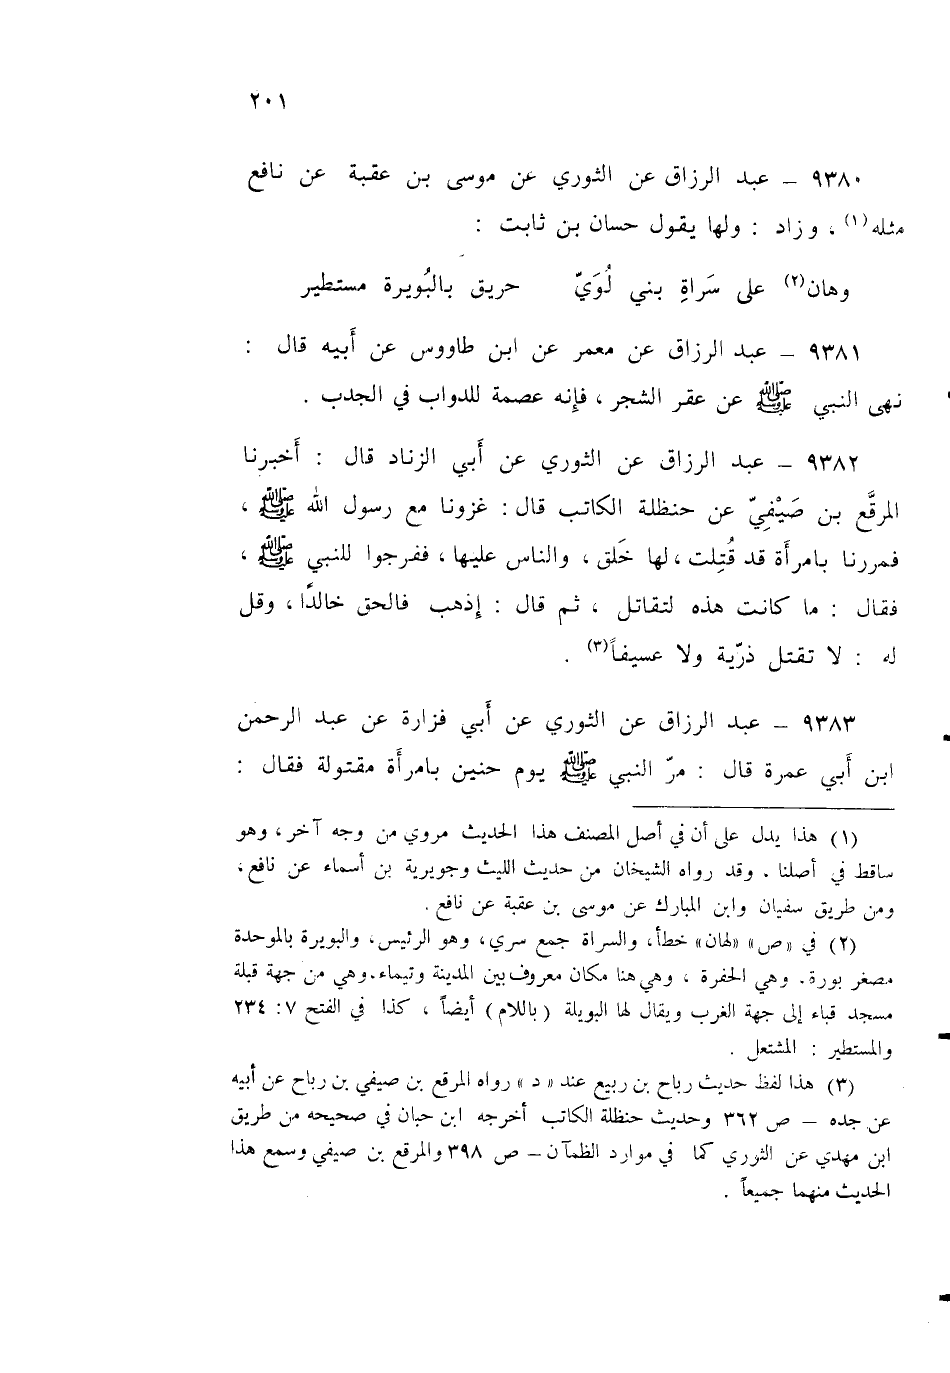 ٢٠١
٩٣٨٠ – عبد الرزاق عن الثوري عن موسى بن عقبة عن نافع
مثله(١) ، وزاد : ولها يقول حسان بن ثابت :
وهان(٢) على سَراةِ بني لُوَيّ حريق بالبُويرة مستطير
٩٣٨١ – عبد الرزاق عن معمر عن ابن طاووس عن أَبيه قال :
نهى النبي ﷺ عن عقر الشجر ، فإنه عصمة للدواب في الجدب .
٩٣٨٢ – عبد الرزاق عن الثوري عن أَبي الزناد قال : أَخبرنا
المرقَّع بن صَيْفِيّ عن حنظلة الكاتب قال : غزونا مع رسول الله ﷺ ،
فمررنا بامرأَة قد قُتِلت ، لها خَلق ، والناس عليها ، ففرجوا للنبي ﷺ ،
فقال : ما كانت هذه لتقاتل ، ثم قال : إذهب فالحق خالدًا ، وقل
له : لا تقتل ذرّية ولا عسيفاً(٣) .
٩٣٨٣ – عبد الرزاق عن الثوري عن أَبي فزارة عن عبد الرحمن
ابن أَبي عمرة قال : مرّ النبي ﷺ يوم حنين بامرأَة مقتولة فقال :
(١) هذا يدل على أن في أصل المصنف هذا الحديث مروي من وجه آخر ، وهو
ساقط في أصلنا . وقد رواه الشيخان من حديث الليث وجويرية بن أسماء عن نافع ،
ومن طريق سفيان وابن المبارك عن موسى بن عقبة عن نافع .
(٢) في «ص» «لهان» خطأ، والسراة جمع سري، وهو الرئيس، والبويرة بالموحدة
مصغر بورة. وهي الحفرة ، وهي هنا مكان معروف بين المدينة وتيماء.وهي من جهة قبلة
مسجد قباء إلى جهة الغرب ويقال لها البويلة (باللام) أيضاً ، كذا في الفتح ٧: ٢٣٤
والمستطير : المشتعل .
(٣) هذا لفظ حديث رباح بن ربيع عند « د » رواه المرقع بن صيفي بن رباح عن أبيه
عن جده – ص ٣٦٢ وحديث حنظلة الكاتب أخرجه ابن حبان في صحيحه من طريق
ابن مهدي عن الثوري كما في موارد الظمآن – ص ٣٩٨ والمرقع بن صيفي وسمع هذا
الحديث منهما جميعاً .